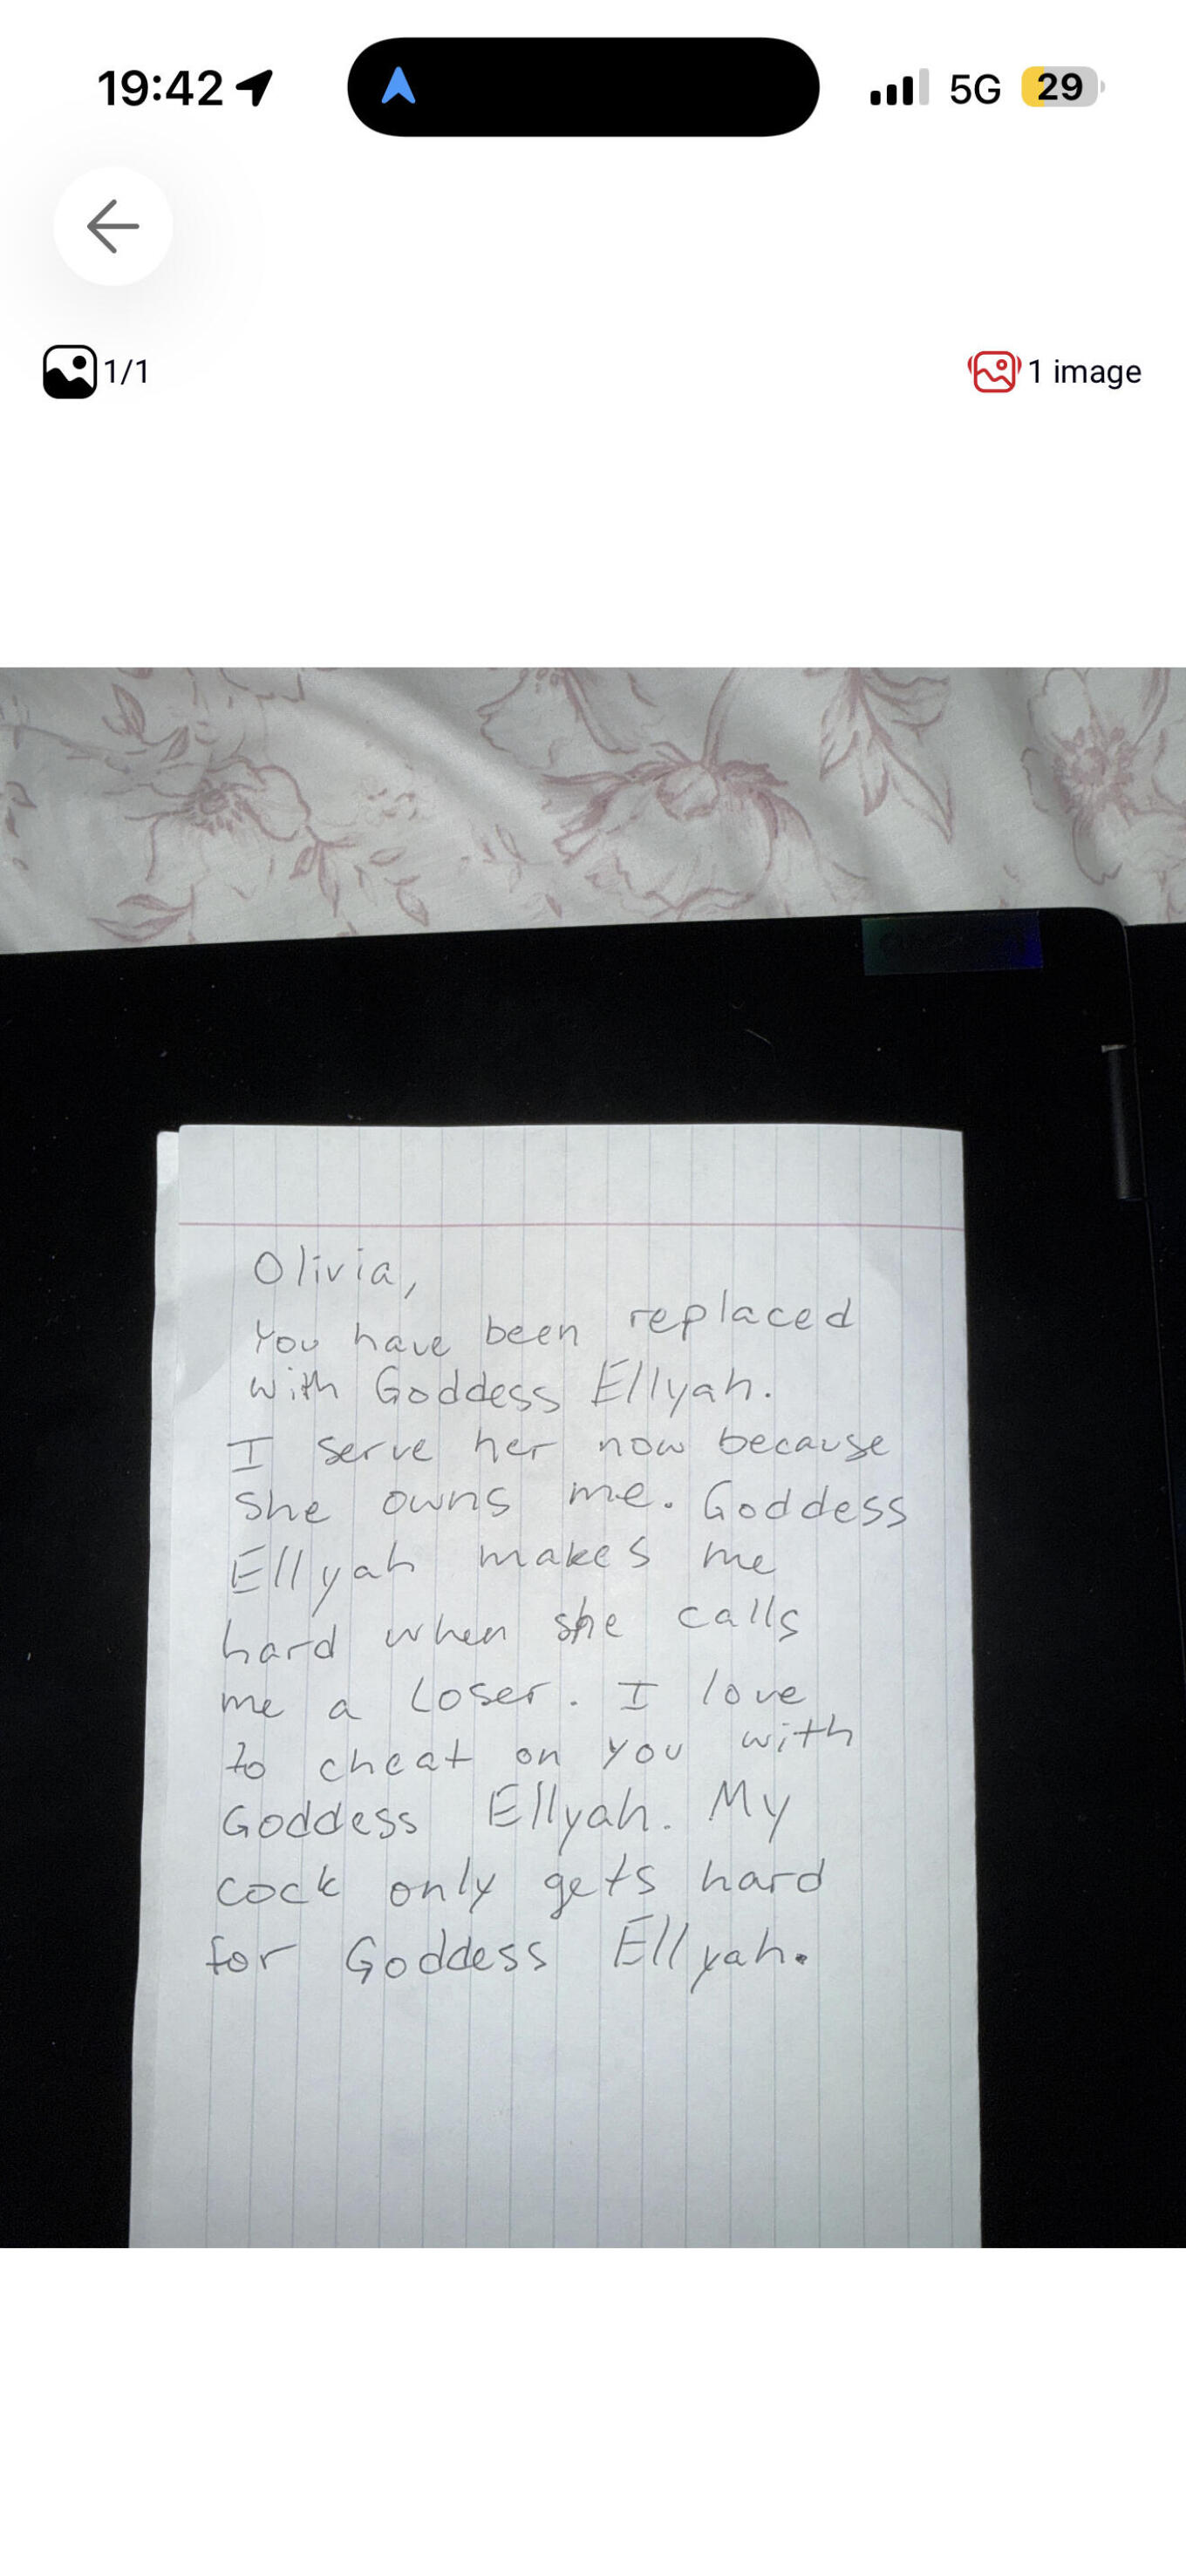 19:42
5G 29
1/1
1 image
Olivia,
You have been replaced
with Goddess Ellyah.
I serve her now because
she owns me. Goddess
Ellyah makes me
hard when she calls
me a loser. I love
to cheat on you with
Goddess Ellyah. My
cock only gets hard
for Goddess Ellyah.